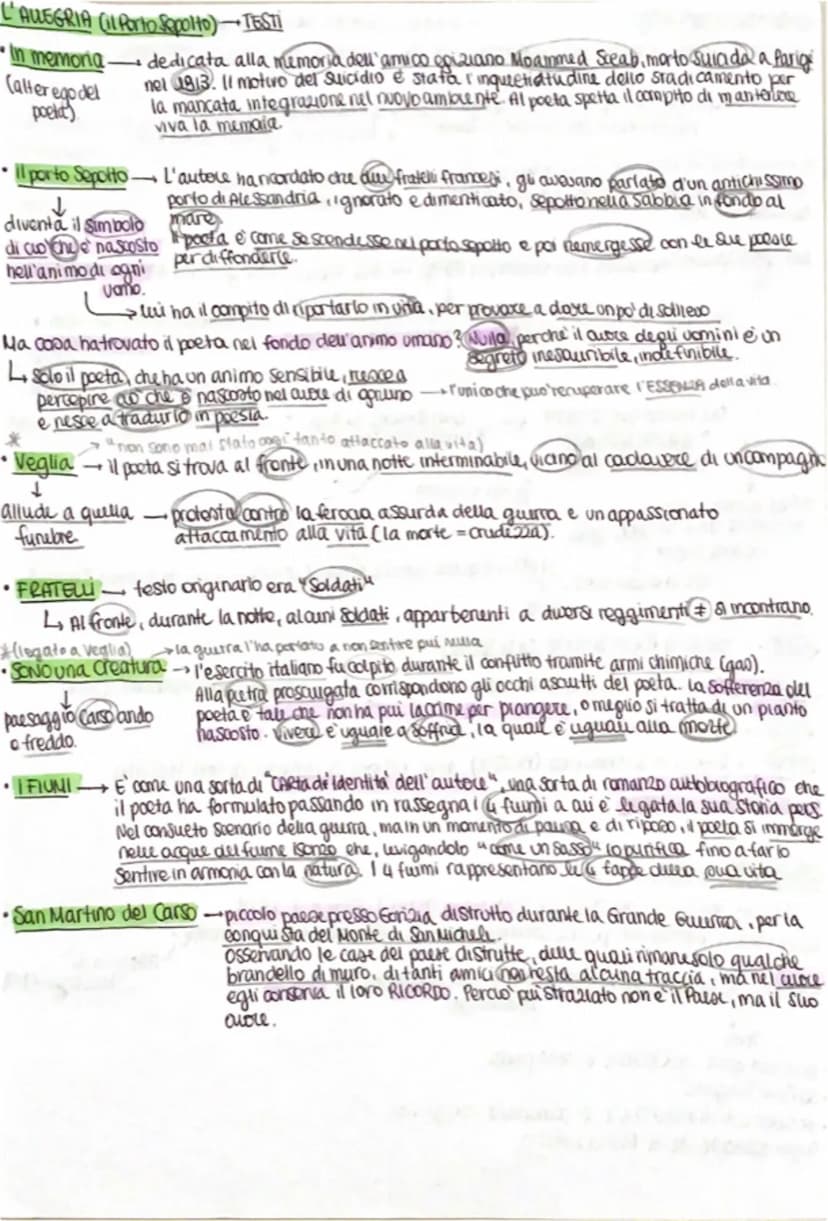 L'ALLEGRIA (il Porto Sepolto) → TESTI
• In memoria → dedicata alla memoria dell'amico egiziano Moammed Sceab, morto suicida a Parigi
(alter ego del poeta)
nel 1913. Il motivo del suicidio è stata l'inquietudine dello sradicamento per
la mancata integrazione nel nuovo ambiente. Al poeta spetta il compito di mantenere
viva la memoria.
• Il porto Sepolto → L'autore ha ricordato che due fratelli francesi, gli avevano parlato d'un antichissimo
porto di Alessandria, ignorato e dimenticato, sepolto nella sabbia in fondo al
mare.
↓
diventa il simbolo
di ciò che è nascosto
nell'animo di ogni
uomo.
Il poeta è come se scendesse nel porto sepolto e poi riemergesse con le sue poesie
per diffonderle.
↳ lui ha il compito di riportarlo in vita, per provare a dare un po' di sollievo
Ma cosa ha trovato il poeta nel fondo dell'animo umano? Nulla, perché il cuore degli uomini è un
segreto inesauribile, indefinibile.
↳ Solo il poeta, che ha un animo sensibile, riesce a
percepire ciò che è nascosto nel cuore di ognuno → l'unico che può recuperare l'ESSENZA della vita
e riesce a tradurlo in poesia.
* → "non sono mai stato così tanto attaccato alla vita)
• Veglia → il poeta si trova al fronte, in una notte interminabile, vicino al cadavere di un compagno
↓
allude a quella funebre → protesta contro la ferocia assurda della guerra e un appassionato
attaccamento alla vita (la morte = crudezza).
• FRATELLI → testo originario era "Soldati"
↳ Al fronte, durante la notte, alcuni soldati, appartenenti a diversi reggimenti ≠ si incontrano.
*(legato a Veglia) → la guerra l'ha portato a non sentire più nulla
• SONO UNA CREATURA → l'esercito italiano fu colpito durante il conflitto tramite armi chimiche (gas).
↓
paesaggio Carso arido
e freddo.
Alla pietra prosciugata corrispondono gli occhi asciutti del poeta. La sofferenza del
poeta è tale che non ha pui lacrime per piangere, o meglio si tratta di un pianto
nascosto. Vivere è uguale a soffrire, la quale è uguale alla morte.
• I FIUMI → È come una sorta di "carta di identità dell'autore", una sorta di romanzo autobiografico che
il poeta ha formulato passando in rassegna i 4 fiumi a cui è legata la sua storia pers.
Nel consueto scenario della guerra, ma in un momento di pausa e di riposo, il poeta si immerge
nelle acque del fiume Isonzo che, levigandolo "come un sasso" lo purifica fino a farlo
sentire in armonia con la natura. I 4 fiumi rappresentano le 4 tappe della sua vita
• San Martino del Carso → piccolo paese presso Gorizia distrutto durante la Grande Guerra, per la
conquista del Monte di San Michele.
Osservando le case del paese distrutte, delle quali rimane solo qualche
brandello di muro, di tanti amici non resta alcuna traccia, ma nel cuore
egli conserva il loro RICORDO. Perciò pui straziato non è il Paese, ma il suo
cuore.